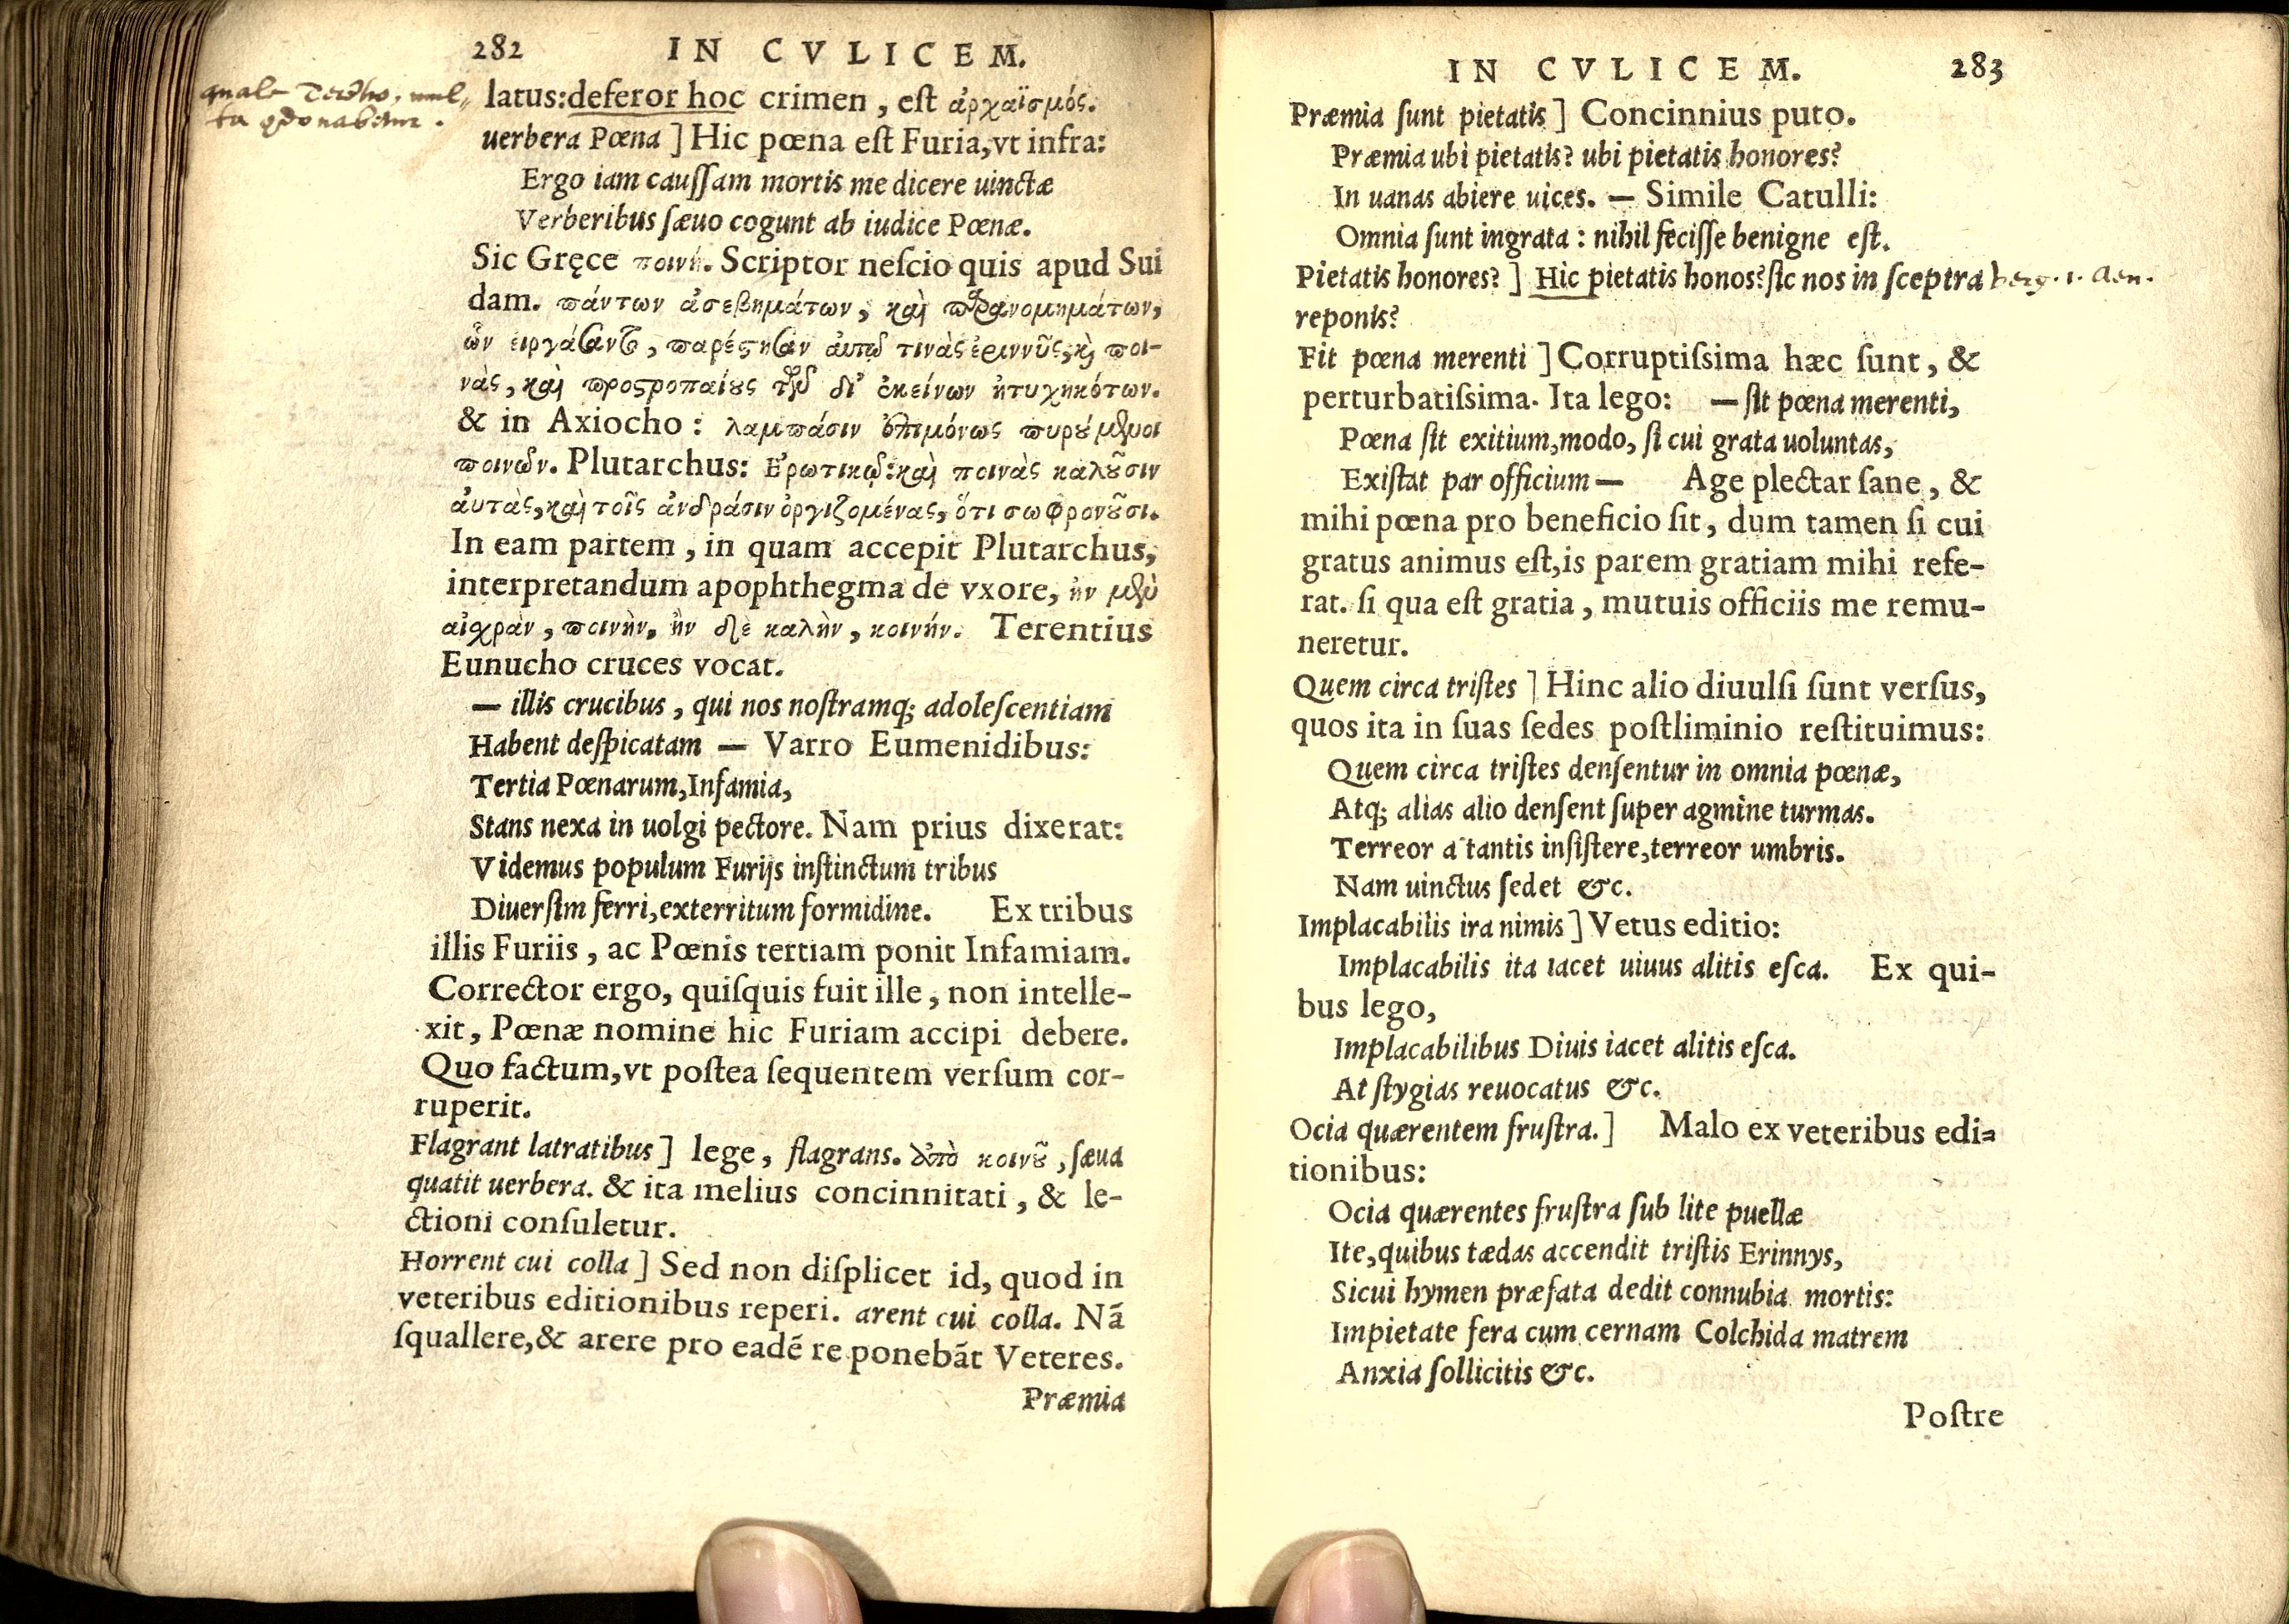 282 IN CVLICEM.
latus:deferor hoc crimen, eſt ἀρχαϊσμός.
uerbera Pœna ] Hic pœna eſt Furia,vt infra:
Ergo iam cauſſam mortis me dicere uinctæ
Verberibus ſæuo cogunt ab iudice Pœnæ.
Sic Gręce ποινή. Scriptor neſcio quis apud Sui
dam. πάντων ἀσεβημάτων, καὶ παρανομημάτων,
ὧν εἰργάσαντο, παρέστησαν αὐτῷ τινὰς ἐριννῦς, καὶ ποι-
νὰς, καὶ προστροπαίους τῶν δι' ἐκείνων ἠτυχηκότων.
& in Axiocho: λαμπάσιν ἐπιμόνως πυρούμενοι
ποινῶν. Plutarchus: Ἐρωτικῷ: καὶ ποινὰς καλοῦσιν
αὐτὰς, καὶ τοῖς ἀνδράσιν ὀργιζομένας, ὅτι σωφρονοῦσι.
In eam partem, in quam accepit Plutarchus,
interpretandum apophthegma de vxore, ἢν μὲν
αἰχρὰν, ποινὴν, ἢν δὲ καλὴν, κοινήν. Terentius
Eunucho cruces vocat.
— illis crucibus, qui nos noſtramq; adoleſcentiam
Habent deſpicatam — Varro Eumenidibus:
Tertia Pœnarum,Infamia,
Stans nexa in uolgi pectore. Nam prius dixerat:
Videmus populum Furijs inſtinctum tribus
Diuerſim ferri,exterritum formidine. Ex tribus
illis Furiis, ac Pœnis tertiam ponit Infamiam.
Corrector ergo, quiſquis fuit ille, non intelle-
xit, Pœnæ nomine hic Furiam accipi debere.
Quo factum,vt poſtea ſequentem verſum cor-
ruperit.
Flagrant latratibus ] lege, flagrans. ἀπὸ κοινοῦ, ſæua
quatit uerbera. & ita melius concinnitati, & le-
ctioni conſuletur.
Horrent cui colla ] Sed non diſplicet id, quod in
veteribus editionibus reperi. arent cui colla. Nã
ſquallere,& arere pro eadẽ re ponebãt Veteres.
Præmia
IN CVLICEM. 283
Præmia ſunt pietatis ] Concinnius puto.
Præmia ubi pietatis? ubi pietatis honores?
In uanas abiere uices. — Simile Catulli:
Omnia ſunt ingrata: nihil feciſſe benigne eſt.
Pietatis honores? ] Hic pietatis honos?ſic nos in ſceptra
reponis?
Fit pœna merenti ] Corruptiſsima hæc ſunt, &
perturbatiſsima. Ita lego: — ſit pœna merenti,
Pœna ſit exitium,modo, ſi cui grata uoluntas,
Exiſtat par officium — Age plectar ſane, &
mihi pœna pro beneficio ſit, dum tamen ſi cui
gratus animus eſt,is parem gratiam mihi refe-
rat. ſi qua eſt gratia, mutuis officiis me remu-
neretur.
Quem circa triſtes ] Hinc alio diuulſi ſunt verſus,
quos ita in ſuas ſedes poſtliminio reſtituimus:
Quem circa triſtes denſentur in omnia pœnæ,
Atq; alias alio denſent ſuper agmine turmas.
Terreor a tantis inſiſtere,terreor umbris.
Nam uinctus ſedet &c.
Implacabilis ira nimis ] Vetus editio:
Implacabilis ita iacet uiuus alitis eſca. Ex qui-
bus lego,
Implacabilibus Diuis iacet alitis eſca.
At ſtygias reuocatus &c.
Ocia quærentem fruſtra. ] Malo ex veteribus edi-
tionibus:
Ocia quærentes fruſtra ſub lite puellæ
Ite,quibus tædas accendit triſtis Erinnys,
Sicui hymen præfata dedit connubia mortis:
Impietate fera cum cernam Colchida matrem
Anxia ſollicitis &c.
Poſtre